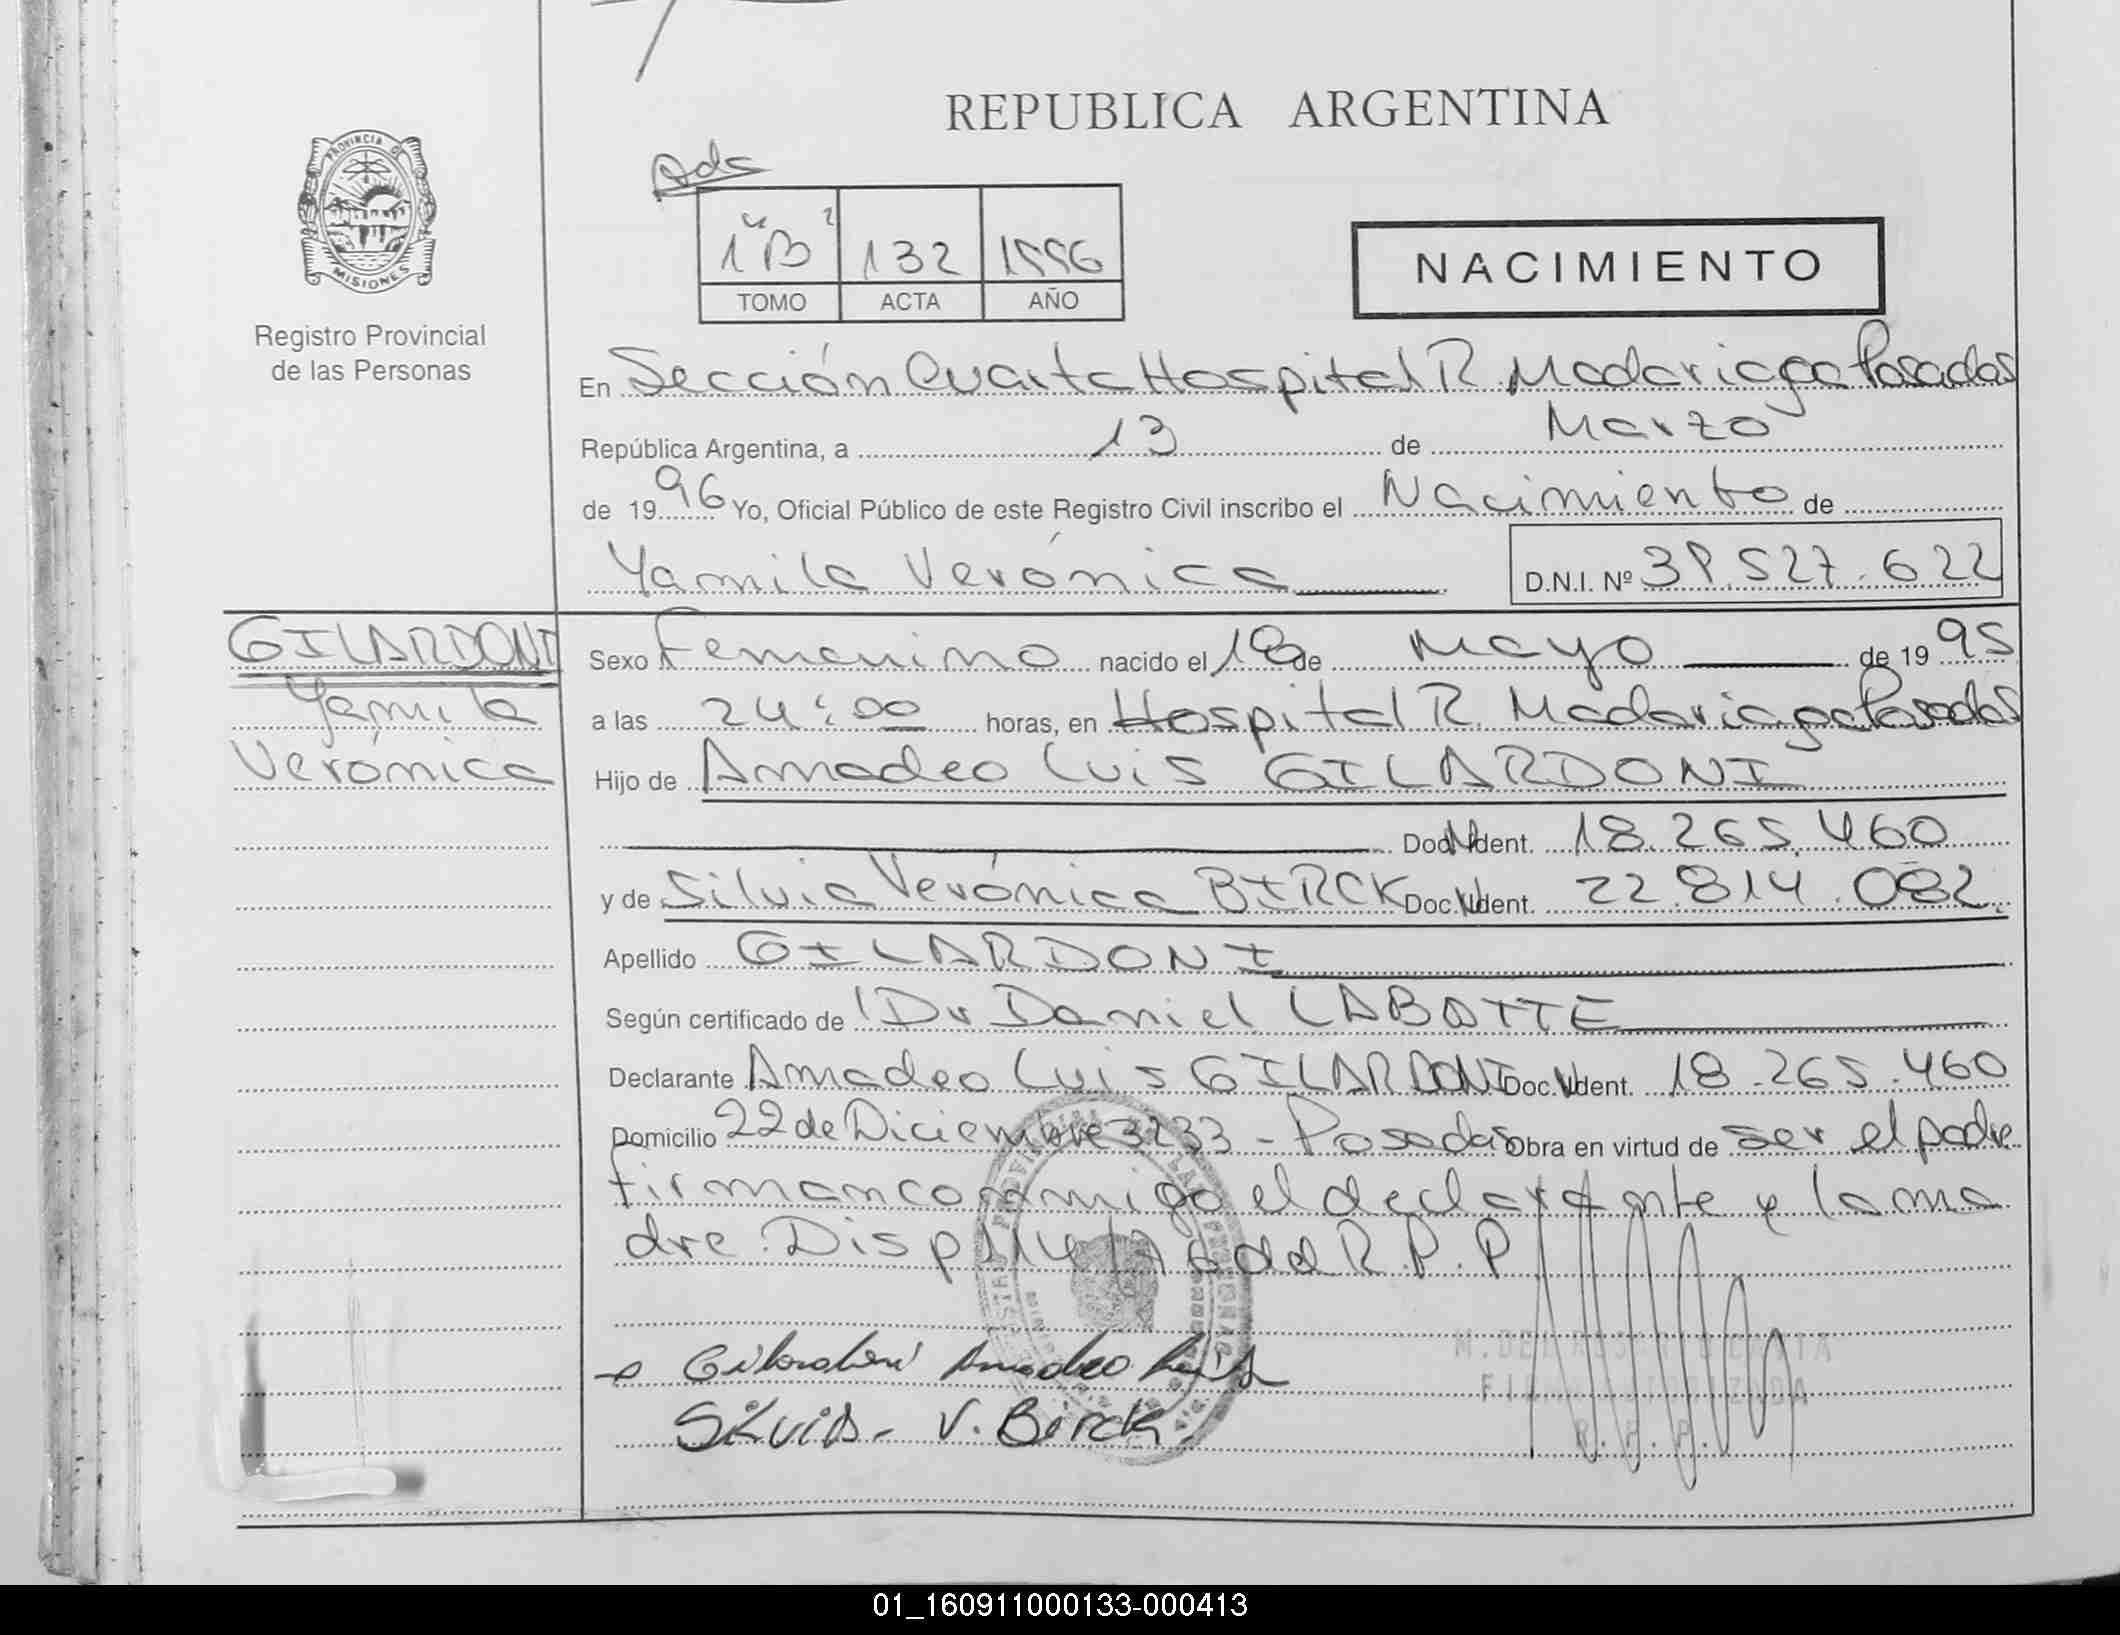 REPUBLICA ARGENTINA
PROVINCIA D
MISIONES
Registro Provincial
de las Personas
Ads
1"B" 132 1996
TOMO ACTA AÑO
NACIMIENTO
En Sección Cuarta Hospital R. Madariaga Posadas
República Argentina, a 13 de Marzo
de 1996 Yo, Oficial Público de este Registro Civil inscribo el Nacimiento de
Yamila Verónica D.N.I. Nº 39.527.622
GILARDONI
Yamila
Verónica
Sexo Femenino nacido el 18 de Mayo de 1995
a las 24:00 horas, en Hospital R. Madariaga Posadas
Hijo de Amadeo Luis GILARDONI
Doc. N Ident. 18.265.460
y de Silvia Verónica BIRCK Doc. N Ident. 22.814.082
Apellido GILARDONI
Según certificado de Dr Daniel LABATTE
Declarante Amadeo Luis GILARDONI Doc. N Ident. 18.265.460
Domicilio 22 de Diciembre 3233 - Posadas Obra en virtud de ser el padre
firman conmigo el declarante y la ma
dre. Disp 114 del R.P.P
Gilardoni Amadeo Luis
Silvia V. Birck
FIRMA AUTORIZADA
R. P. P.
01_160911000133-000413